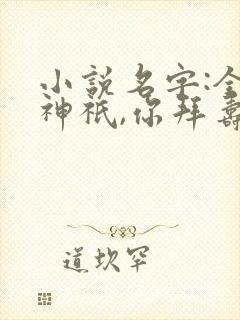 小說名字:全
神祇,你拜壽
道坎罕